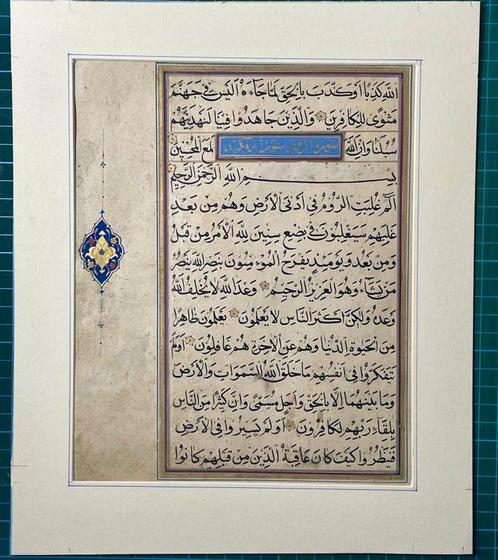 الله كذبا او كذب بالحق لما جاءه اليس في جهنم
مثوى للكافرين والذين جاهدوا فينا لنهدينهم
سبلنا وان الله لمع المحسنين
بسم الله الرحمن الرحيم
الم غلبت الروم في ادنى الارض وهم من بعد
غلبهم سيغلبون في بضع سنين لله الامر من قبل
ومن بعد ويومئذ يفرح المؤمنون بنصر الله ينصر
من يشاء وهو العزيز الرحيم وعد الله لا يخلف الله
وعده ولكن اكثر الناس لا يعلمون يعلمون ظاهرا
من الحيوة الدنيا وهم عن الاخرة هم غافلون اولم
يتفكروا في انفسهم ما خلق الله السموات والارض
وما بينهما الا بالحق واجل مسمى وان كثيرا من الناس
بلقاء ربهم لكافرون اولم يسيروا في الارض
فينظروا كيف كان عاقبة الذين من قبلهم كانوا